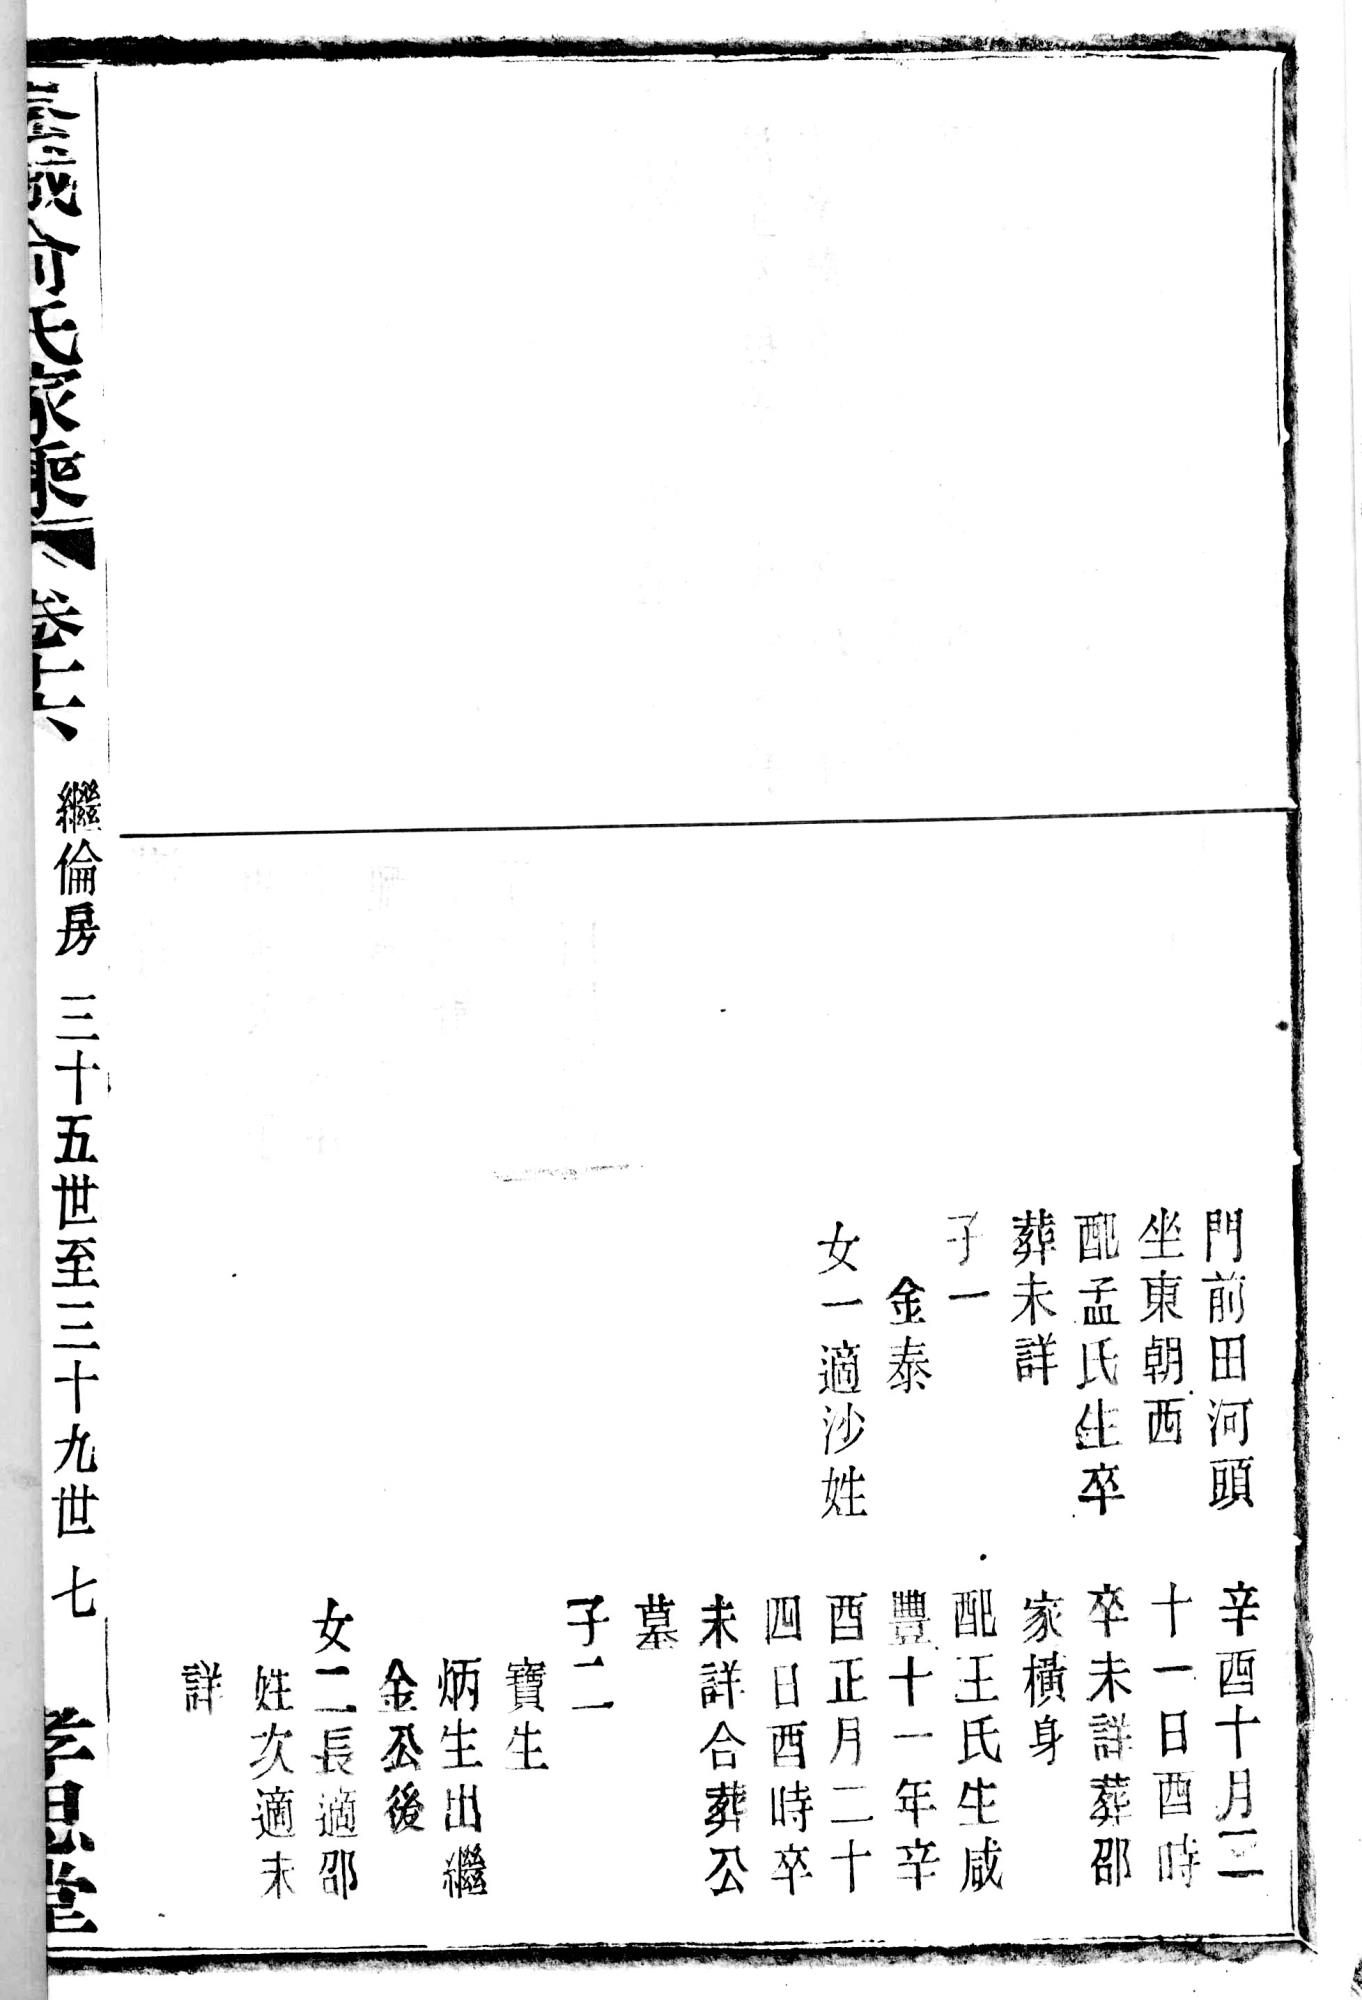 門前田河頭
坐東朝西
配孟氏生卒
葬未詳
子一
金泰
女一適沙姓
辛酉十月二
十一日酉時
卒未詳葬邵
家橫身
配王氏生咸
豐十一年辛
酉正月二十
四日酉時卒
未詳合葬公
墓
子二
寶生
炳生出繼
金公後
女二長適邵
姓次適未
詳
城俞氏家乘 卷十六 繼倫房 三十五世至三十九世 七 孝思堂